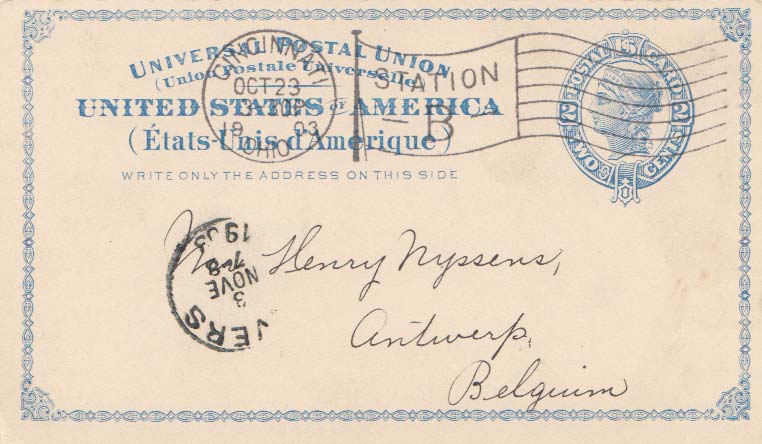 UNIVERSAL POSTAL UNION
(Union Postale Universelle)
UNITED STATES OF AMERICA
(États-Unis d'Amérique)
WRITE ONLY THE ADDRESS ON THIS SIDE
CINCINNATI
OCT 23
3-30P
03
OHIO
STATION
B
POSTAL CARD
2 2
TWO CENTS
VERS
3
NOVE
7-8
Henry Nyssens,
Antwerp,
Belgium